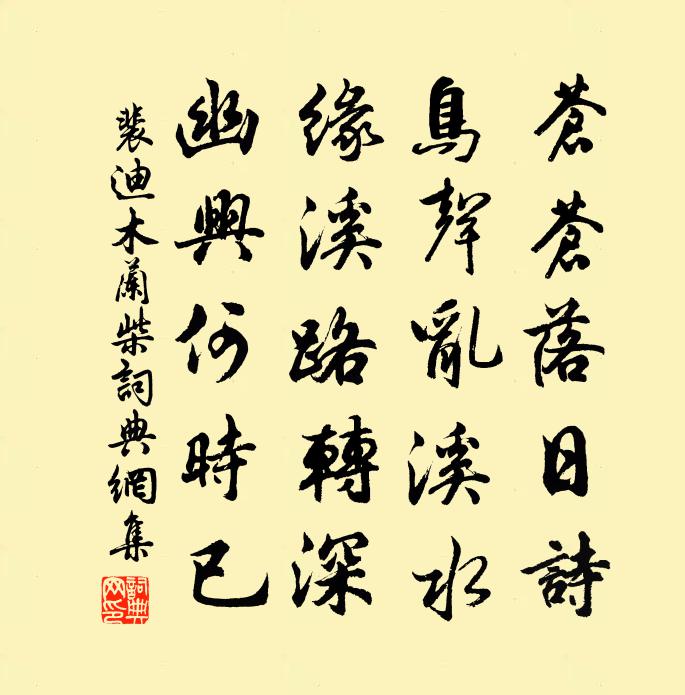 蒼蒼落日詩
鳥聲亂溪水
緣溪路轉深
幽興何時已
裴迪木蘭柴詞典網集
詞典网印